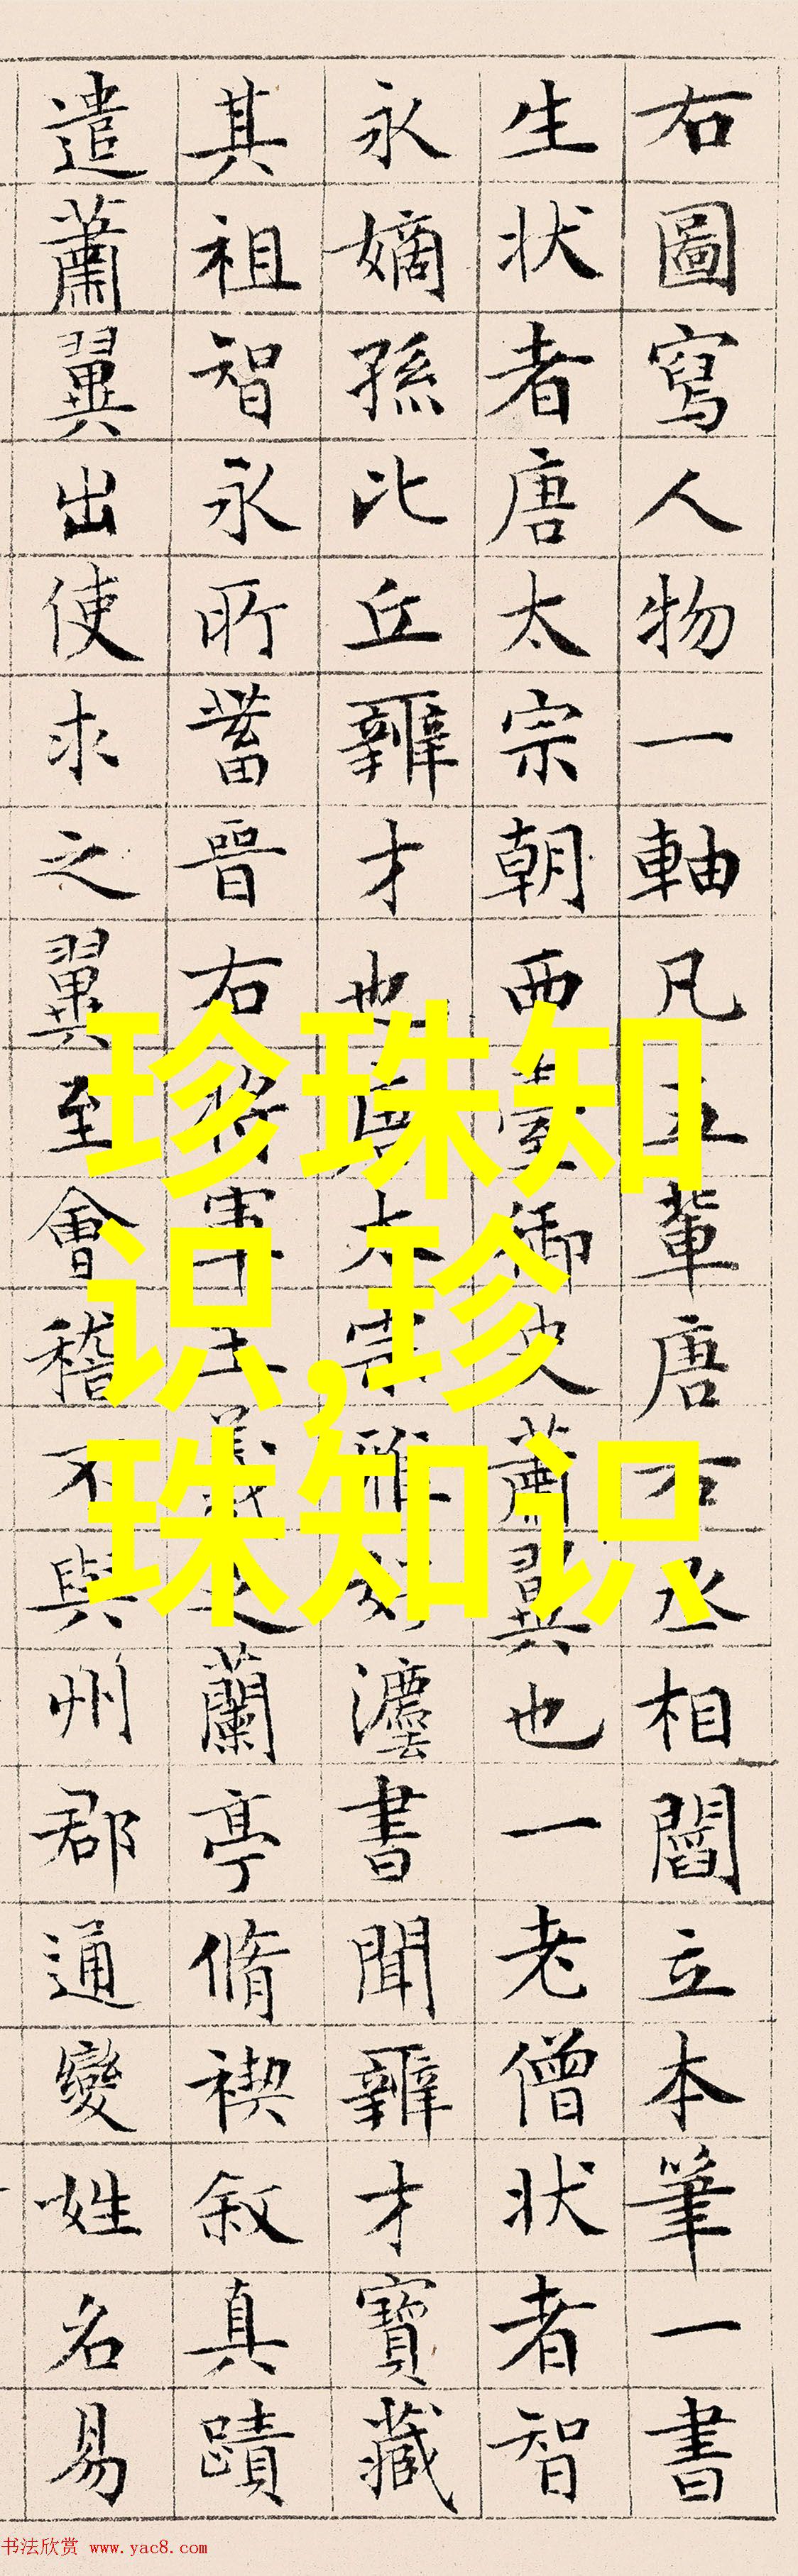 右圖寫人物一軸凡五輩唐右丞相閻立本筆一書
生状者唐太宗朝西臺御史蕭翼也一老僧状者智
永嫡孫比丘辯才也唐太宗雅好灋書聞辯才寶藏
其祖智永所蓄晉右將軍王羲之蘭亭脩禊叙真蹟
遣蕭翼出使求之翼至會稽不與州郡通變姓名易
珍珠知
识,珍
珠知识
书法欣赏 www.yac8.com